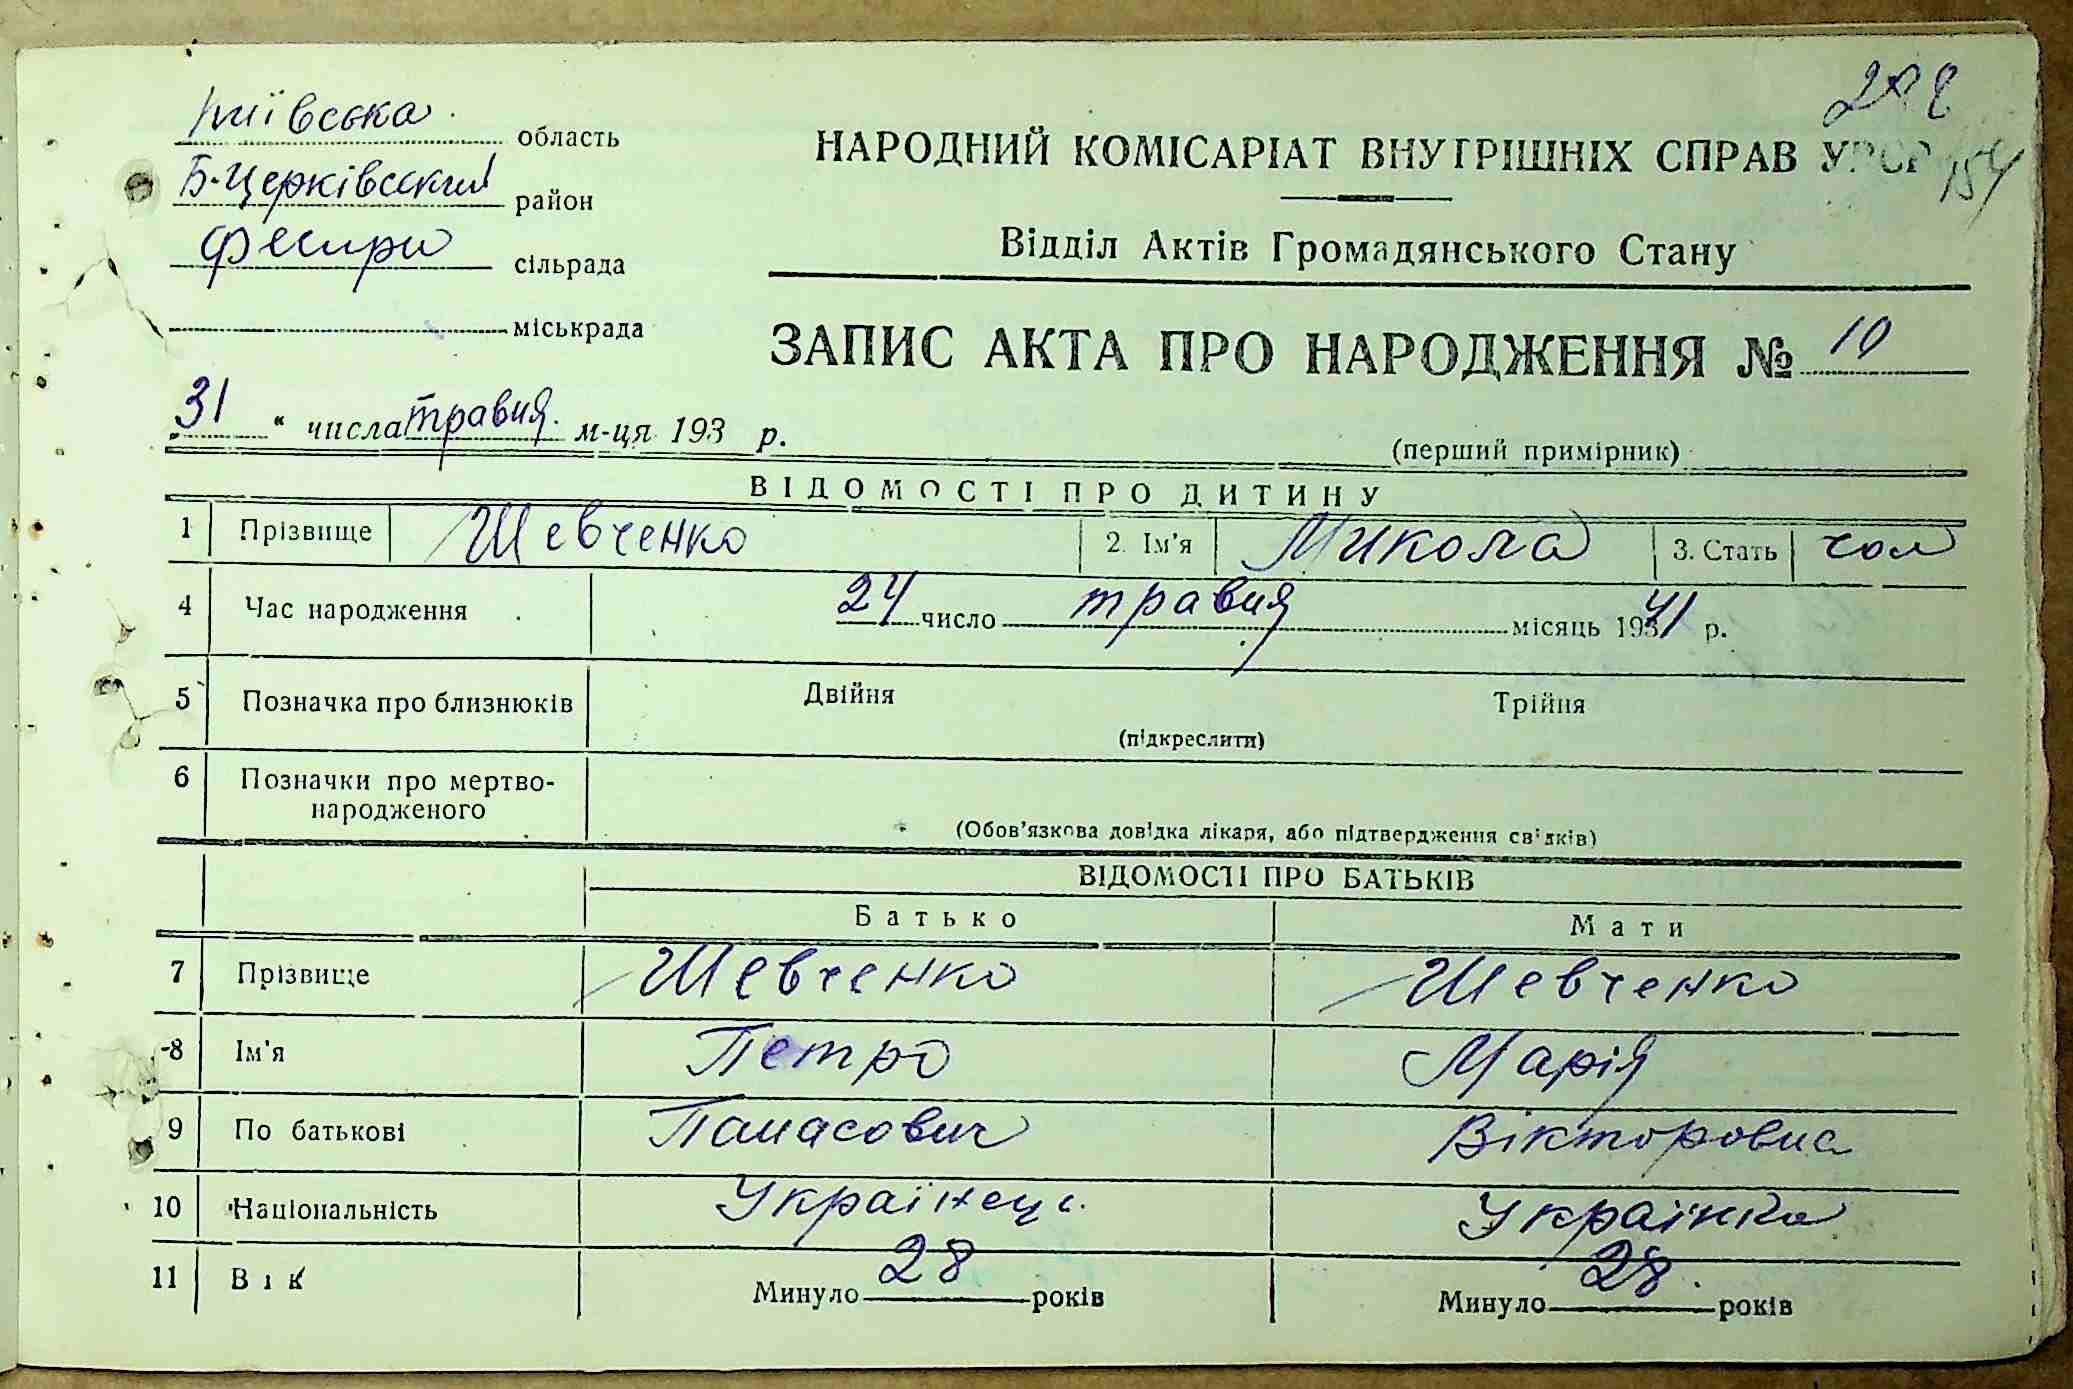 Київська область
Б-Церківський район
Фесири сільрада
міськрада
154
НАРОДНИЙ КОМІСАРІАТ ВНУТРІШНІХ СПРАВ УРСР
Відділ Актів Громадянського Стану
ЗАПИС АКТА ПРО НАРОДЖЕННЯ № 10
31 " числа травня м-ця 193 р.
(перший примірник)
ВІДОМОСТІ ПРО ДИТИНУ
1 Прізвище Шевченко 2. Ім'я Микола 3. Стать чол
4 Час народження 24 число травня місяць 1941 р.
5 Позначка про близнюків Двійня Трійня
(підкреслити)
6 Позначки про мертво-
народженого
(Обов'язкова довідка лікаря, або підтвердження свідків)
ВІДОМОСТІ ПРО БАТЬКІВ
Батько Мати
7 Прізвище Шевченко Шевченко
8 Ім'я Петро Марія
9 По батькові Панасович Вікторовна
10 Національність Українець. Українка
11 Вік Минуло 28 років Минуло 28. років